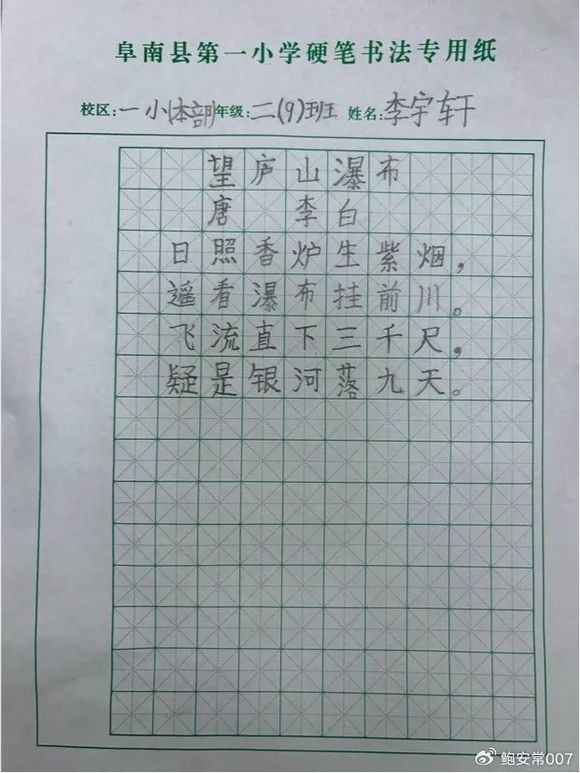 阜南县第一小学硬笔书法专用纸
校区:一小(本部)年级:二(9)班 姓名:李宇轩
望庐山瀑布
唐 李白
日照香炉生紫烟,
遥看瀑布挂前川。
飞流直下三千尺,
疑是银河落九天。
鲍安常007